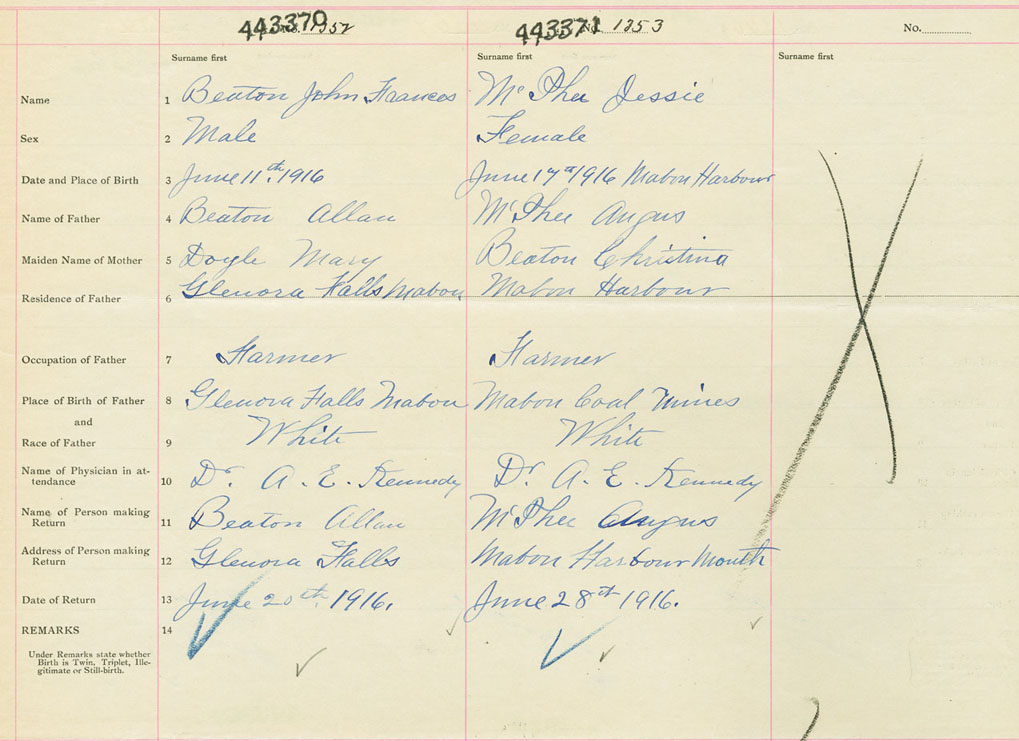 443370 No. 1352 443371 No. 1353 No.
Surname first Surname first Surname first
Name 1 Beaton John Frances McPhee Jessie
Sex 2 Male Female
Date and Place of Birth 3 June 11th 1916 June 17th 1916 Mabou Harbour
Name of Father 4 Beaton Allan McPhee Angus
Maiden Name of Mother 5 Doyle Mary Beaton Christina
Residence of Father 6 Glenora Falls Mabou Mabou Harbour
Occupation of Father 7 Farmer Farmer
Place of Birth of Father 8 Glenora Falls Mabou Mabou Coal Mines
and
Race of Father 9 White White
Name of Physician in at-
tendance 10 Dr. A. E. Kennedy Dr. A. E. Kennedy
Name of Person making
Return 11 Beaton Allan McPhee Angus
Address of Person making
Return 12 Glenora Falls Mabou Harbour Mouth
Date of Return 13 June 20th 1916. June 28th 1916.
REMARKS 14
Under Remarks state whether
Birth is Twin, Triplet, Ille-
gitimate or Still-birth.